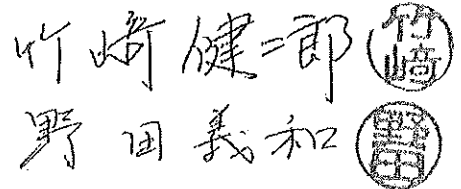 竹崎健二郎 竹崎
野田義和 野田